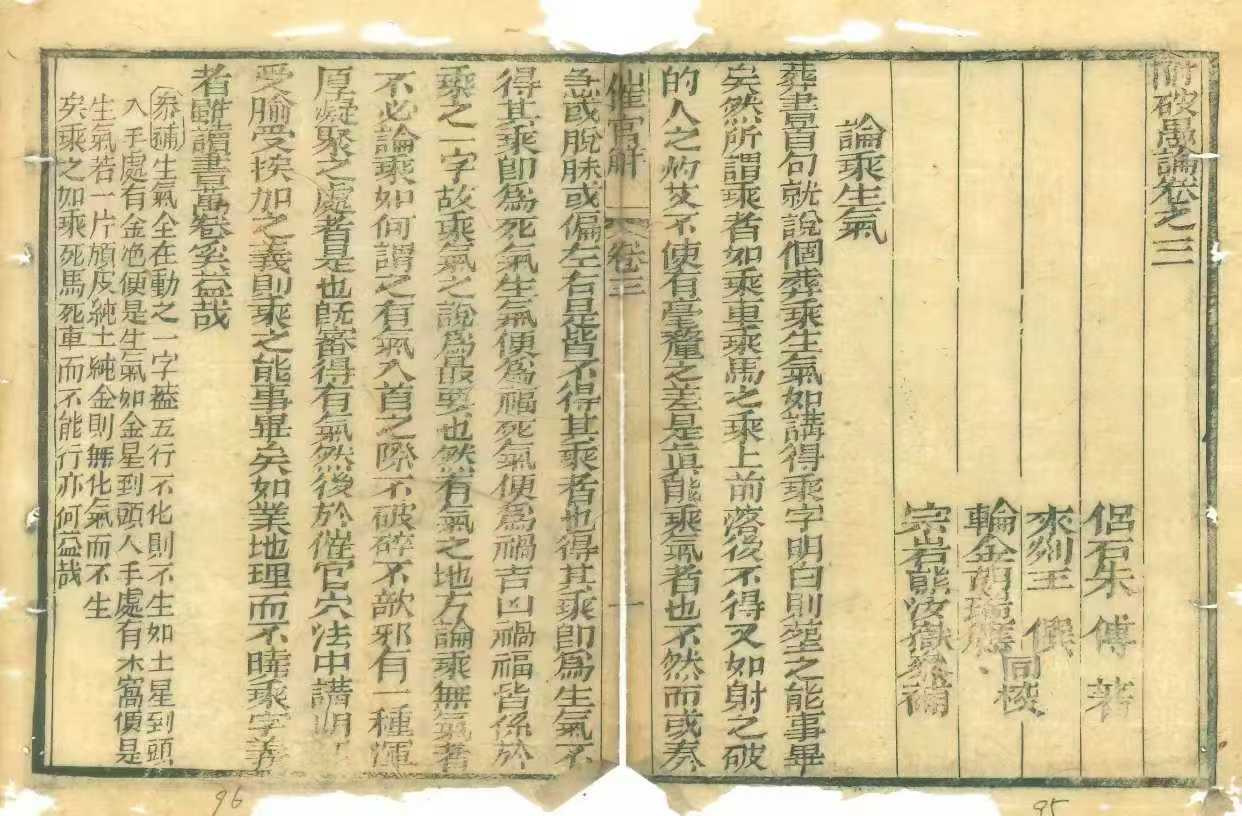 附破愚論卷之三
侶石朱傅著
來剡王僎
輪金胡瑞應同校
宗岩熊汝嶽參補
論乘生氣
葬書首句就說個葬乘生氣如講得乘字明白則葬之能事畢
矣然所謂乘者如乘車乘馬之乘上前落後不得又如射之破
的人之灼艾不使有毫釐之差是眞能乘氣者也不然而或奏
催官解 卷三 一
急或脫脉或偏左右是皆不得其乘者也得其乘卽爲生氣不
得其乘卽爲死氣生氣便爲福死氣便爲禍吉凶禍福皆係於
乘之一字故乘氣之說爲最要也然有氣之地方論乘無氣者
不必論乘如何謂之有氣入首之際不破碎不欹邪有一種渾
厚凝聚之處者是也旣審得有氣然後於催官穴法中講明
受腧受挨加之義則乘之能事畢矣如業地理而不曉乘字義
者雖讀書萬卷奚益哉
參補生氣全在動之一字葢五行不化則不生如土星到頭
入手處有金泡便是生氣如金星到頭入手處有木窩便是
生氣若一片頑皮純土純金則無化氣而不生
矣乘之如乘死馬死車而不能行亦何益哉
96
95